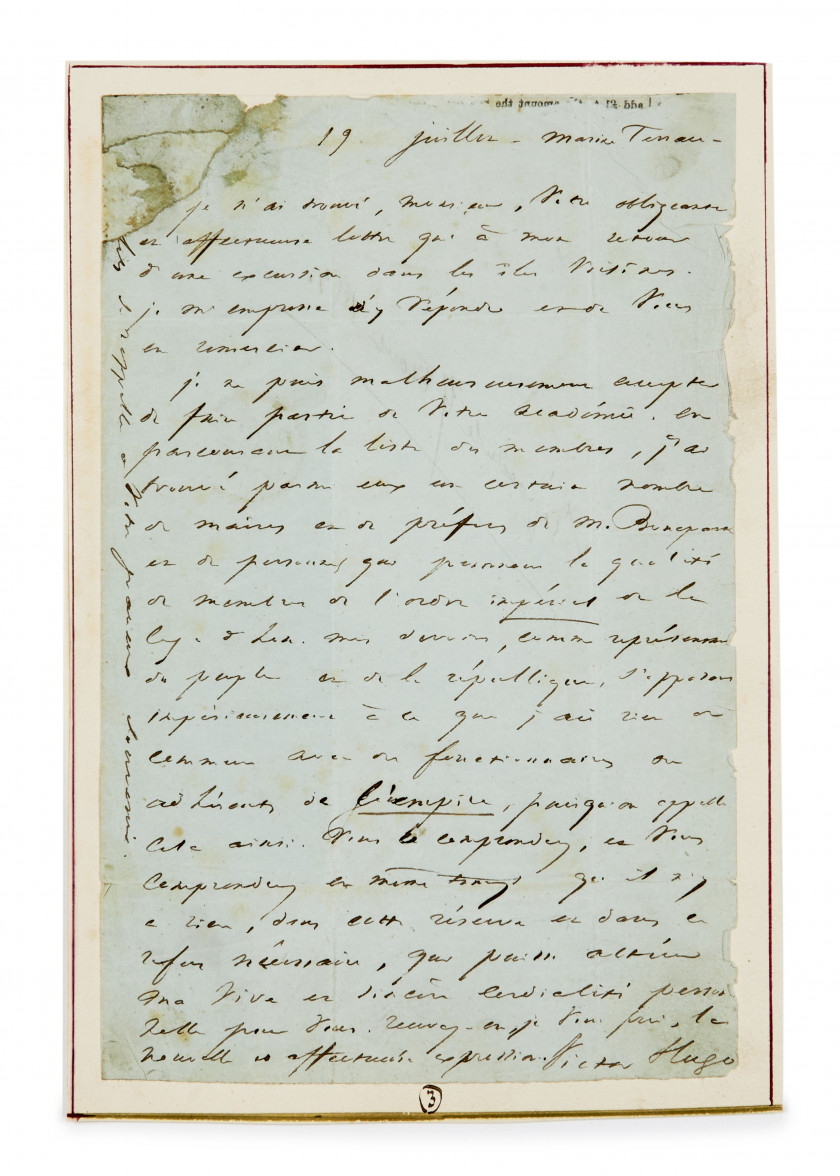 add £1 amount the
19 juillet - marine Terrace -
je n'ai trouvé, monsieur, votre obligeante
et affectueuse lettre qu'à mon retour
d'une excursion dans les îles voisines.
je m'empresse d'y répondre et de vous
en remercier.
je ne puis malheureusement accepter
de faire partie de votre académie. en
parcourant la liste des membres, j'ai
trouvé parmi eux un certain nombre
de maires et de préfets de m. Bonaparte
et de personnes qui prennent la qualité
de membres de l'ordre impérial de la
lég. d'hon. mes devoirs, comme représentant
du peuple et de la république, s'opposent
impérieusement à ce que j'aie rien de
commun avec des fonctionnaires ou
adhérents de l'empire, puisqu'on appelle
cela ainsi. Vous le comprendrez, et vous
comprendrez en même temps qu'il n'y
a rien, dans cette réserve et dans ce
refus nécessaire, qui puisse altérer
ma vive et sincère cordialité person
nelle pour vous. recevez-en, je vous prie, la
nouvelle et affectueuse expression. Victor Hugo
se rappelle à votre gracieux souvenir.
3